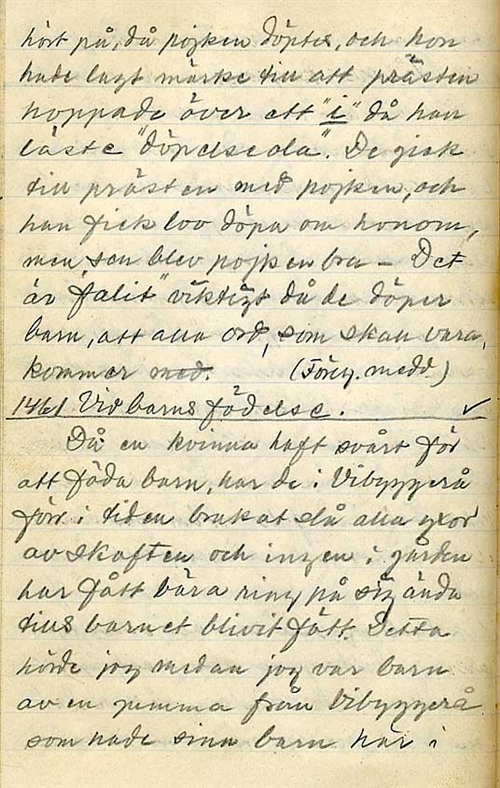 hört på, då pojken döptes, och hon
hade lagt märke till att prästen
hoppade över ett "i" då han
läste "döpelseola". De gick
till prästen med pojken, och
han fick lov döpa om honom,
men, sen blev pojken bra – Det
är "falit" viktigt då de döper
barn, att alla ord, som skall vara,
kommer med. (Föreg. medd.)
1461 Vid barns födelse. ✓
Då en kvinna haft svårt för
att föda barn, har de i Vibyggerå
förr i tiden brukat slå alla yxor
av skaften och ingen i gården
har fått bära ring på sig ända
tills barnet blivit fött. Detta
hörde jag medan jag var barn
av en mamma från Vibyggerå
som hade sina barn här i